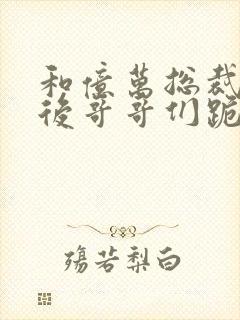 和億萬總裁
後哥哥们跪
殤若梨白